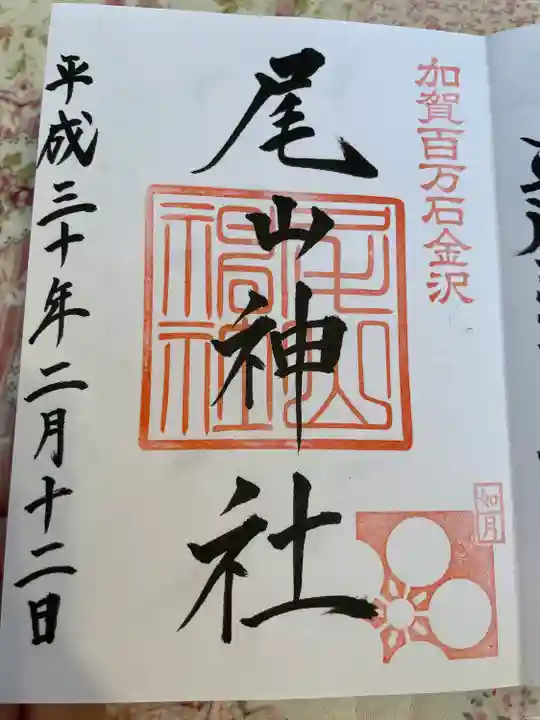 加賀百万石金沢
尾山神社
尾山神社
如月
平成三十年二月十二日